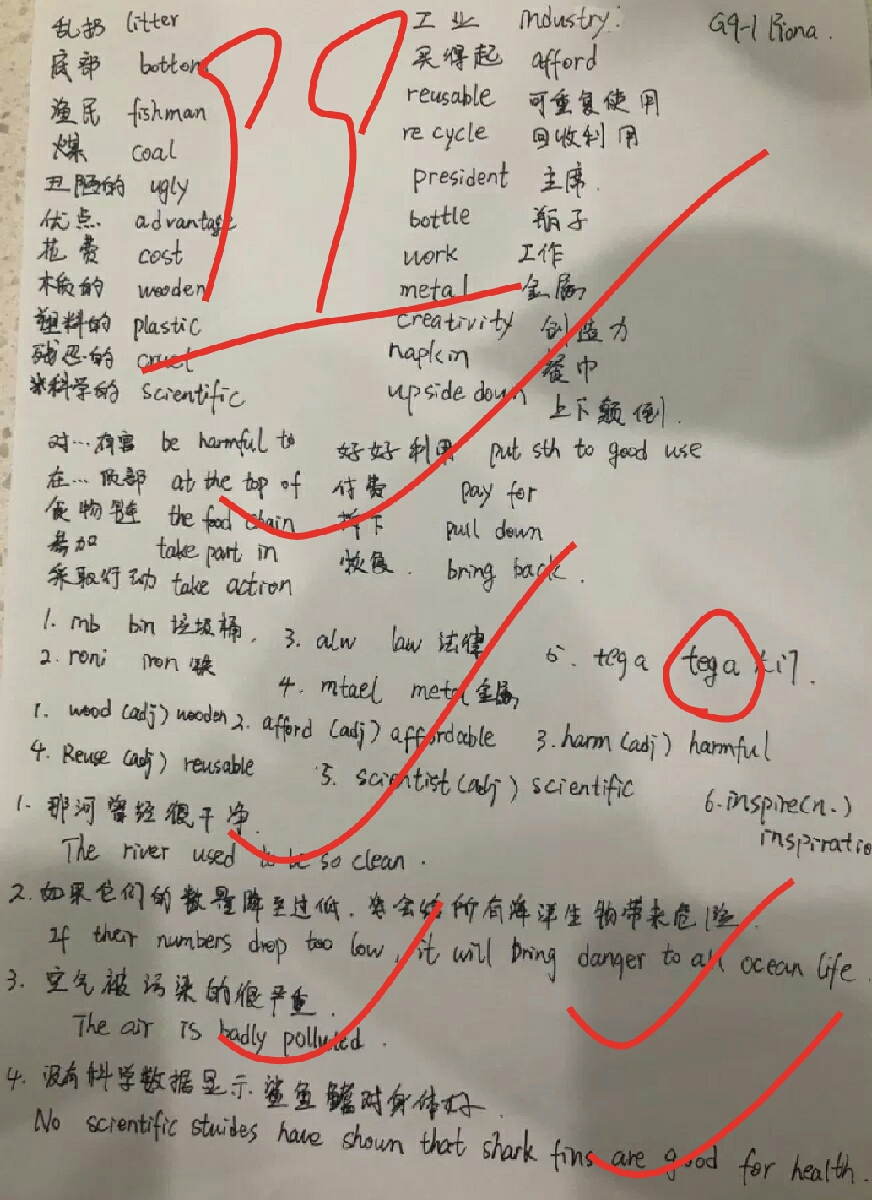 G9-1 Riona.
乱扔 litter
底部 bottom
渔民 fishman
煤 coal
丑陋的 ugly
优点 advantage
花费 cost
木质的 wooden
塑料的 plastic
残忍的 cruel
科学的 scientific
工业 industry.
买得起 afford
reusable 可重复使用
recycle 回收利用
president 主席.
bottle 瓶子
work 工作
metal 金属
creativity 创造力
napkin 餐巾
upside down 上下颠倒.
对…有害 be harmful to
在…顶部 at the top of
食物链 the food chain
参加 take part in
采取行动 take action
好好利用 put sth to good use
付费 pay for
拆下 pull down
恢复. bring back.
1. nib bin 垃圾桶. 3. alw law 法律 5. tega tega 大门.
2. roni iron 铁 4. mtael metal 金属
1. wood (adj) wooden 2. afford (adj) affordable 3. harm (adj) harmful
4. Reuse (adj) reusable 5. scientist (adj) scientific 6. inspire (n.) inspiratio
1. 那河曾经很干净.
The river used to be so clean.
2. 如果它们的数量降至过低. 将会给所有海洋生物带来危险.
If their numbers drop too low, it will bring danger to all ocean life.
3. 空气被污染的很严重.
The air is badly polluted.
4. 没有科学数据显示 鲨鱼鳍对身体好.
No scientific stuides have shown that shark fins are good for health.
99